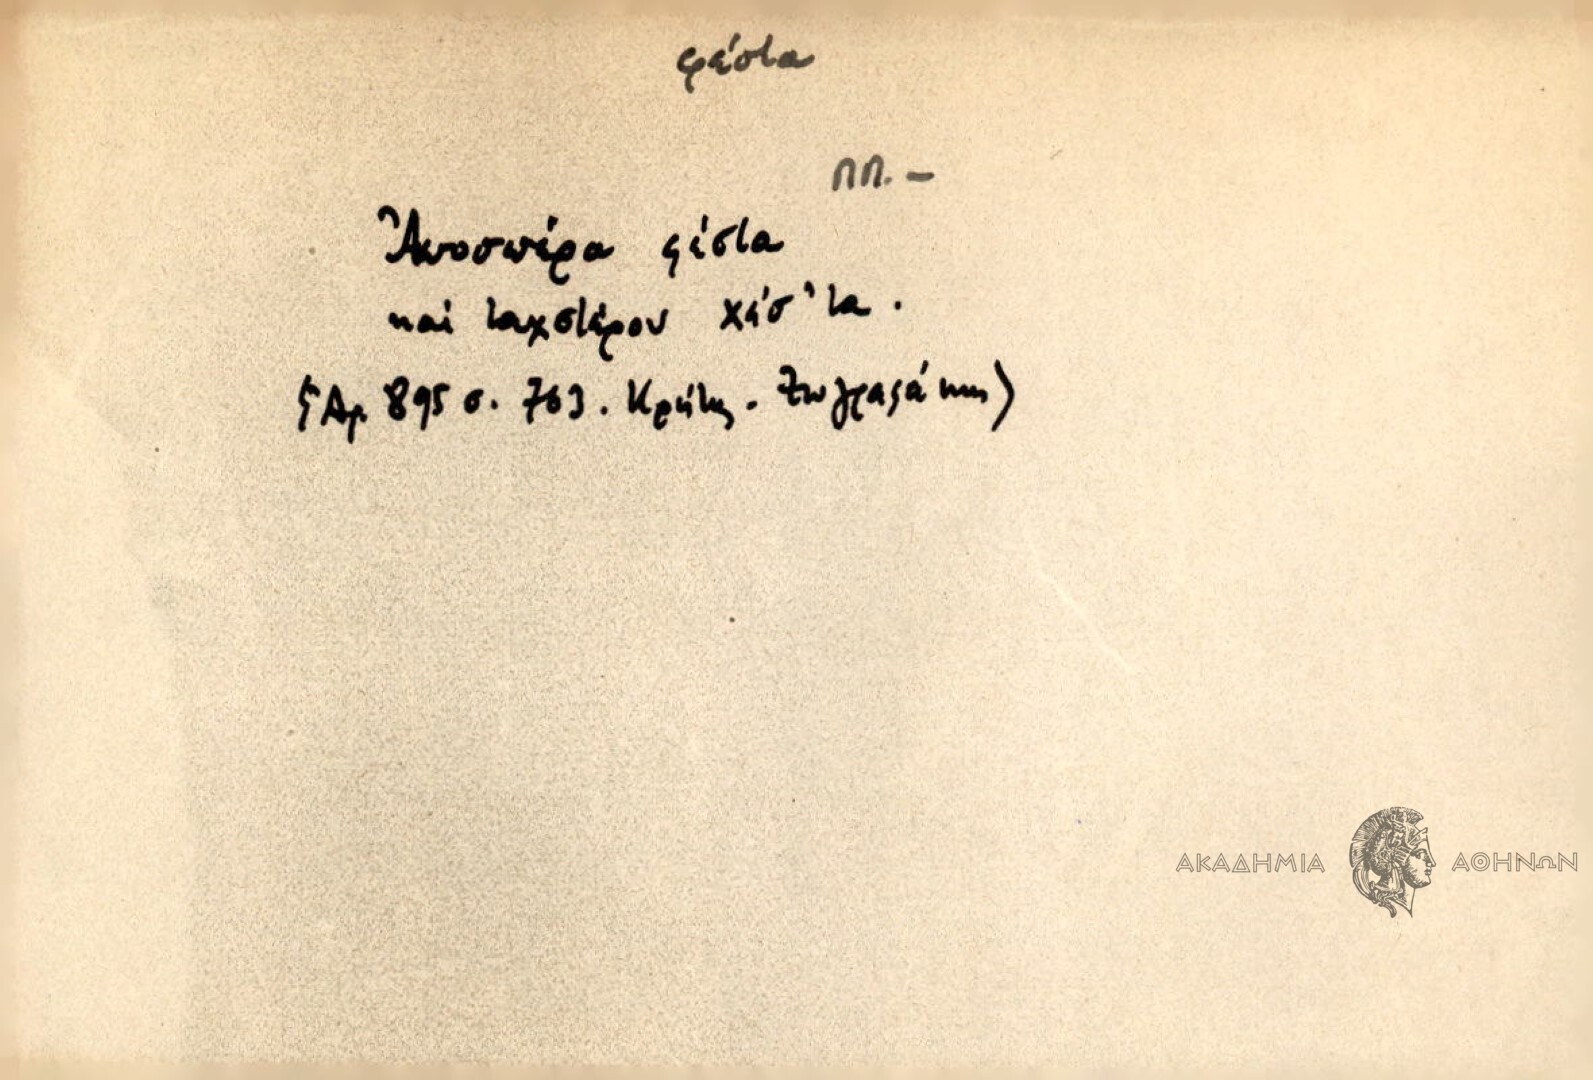 φέστα
ΠΠ. –
Ἀποσπέρα φέστα
καὶ ταχυτέρου χέσ' τα.
(Αρ. 895 σ. 763. Κρήτης. Ζωγραφάκης)
ΑΚΑΔΗΜΙΑ ΑΘΗΝΩΝ